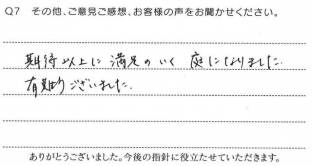 Q7 その他、ご意見ご感想、お客様の声をお聞かせください。
期待以上に満足のいく庭になりました。
有難うございました。
ありがとうございました。今後の指針に役立たせていただきます。